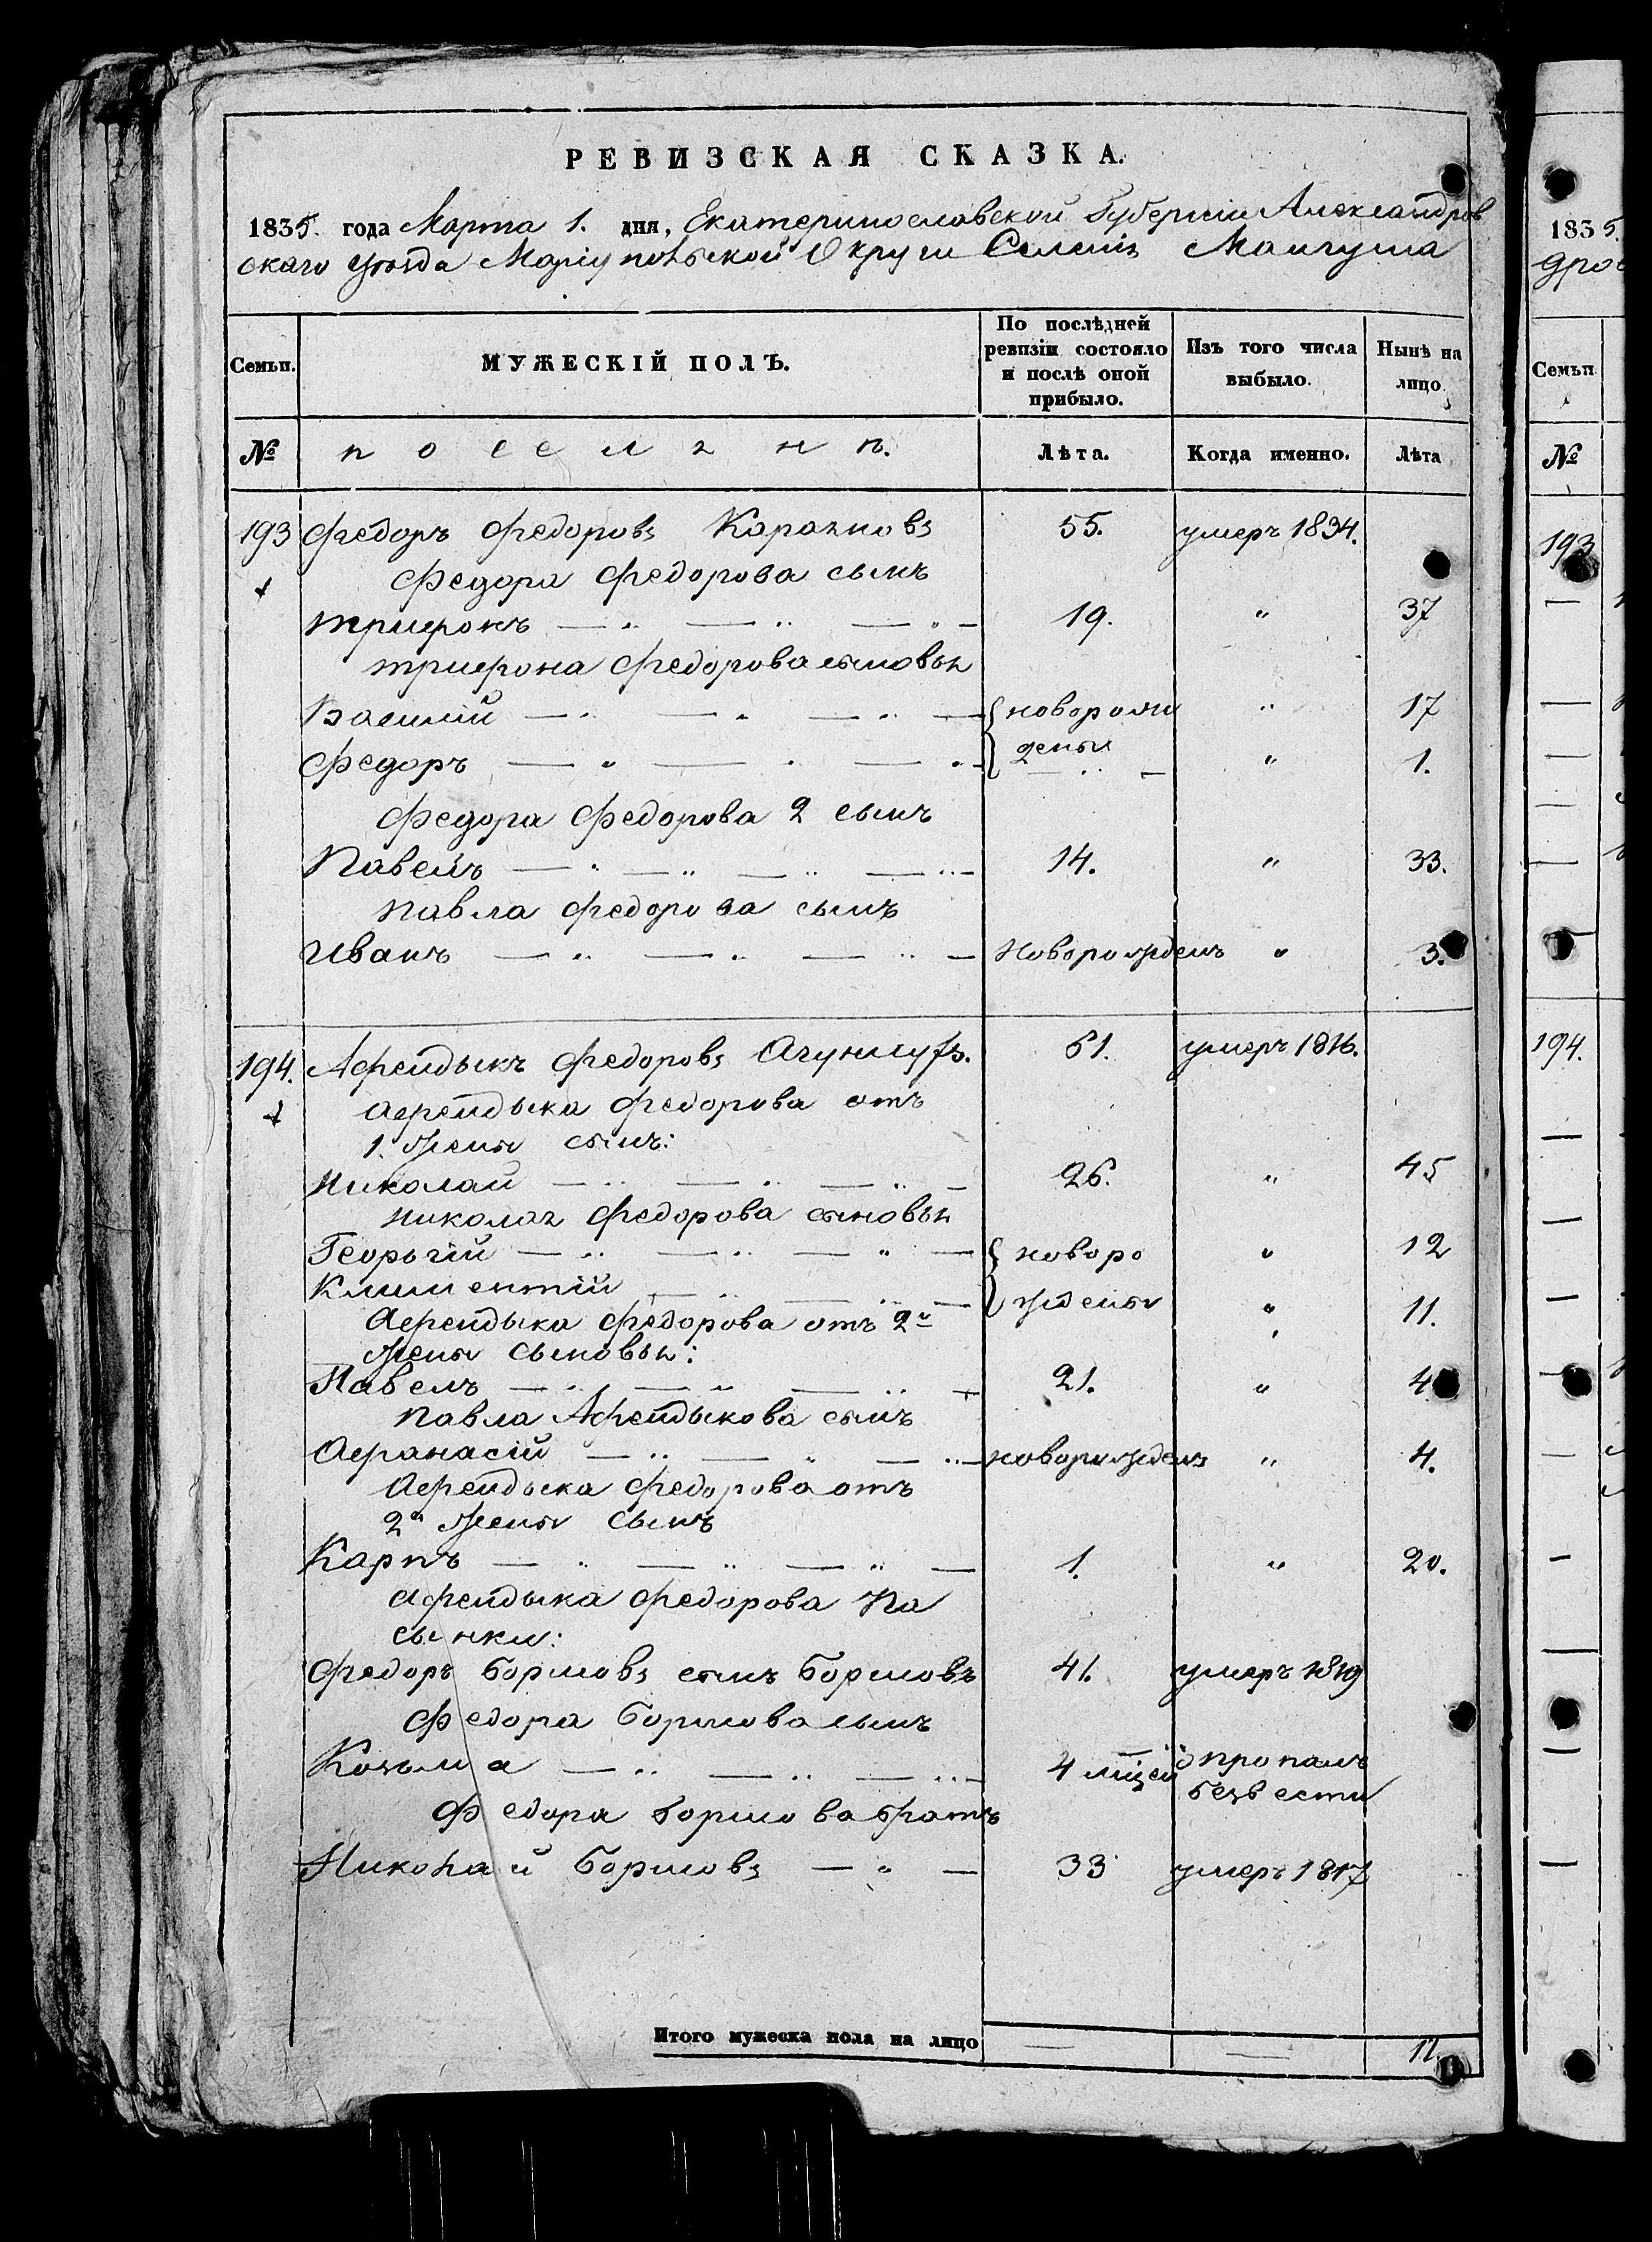 РЕВИЗСКАЯ СКАЗКА.
1835. года Марта 1. дня, Екатеринославской Губерніи Александров
скаго уѣзда Маріупольской Округи Селенія Мангуша
Семьи.
МУЖЕСКІЙ ПОЛЪ.
По послѣдней ревизіи состояло и послѣ оной прибыло.
Изъ того числа выбыло.
Нынѣ на лицо
№ поселянъ. Лѣта. Когда именно. Лѣта
193 Федоръ Федоровъ 55. умеръ 1834.
Федора Федорова сынъ
Трифонъ — " — " — " — 19. " 37
Трифона Федорова сыновья
Василій — " — " — " — { новорож " 17
Федоръ — " — " — " — } дены " 1.
Федора Федорова 2 сынъ
Павелъ — " — " — " — " — 14. " 33.
Павла Федорова сынъ
Иванъ — " — " — " — Новорожденъ " 3.
194. Афендыкъ Федоровъ 61. умеръ 1816.
Афендыка Федорова отъ
1. жены сынъ:
Николай — " — " — " — 26. " 45
Николая Федорова сыновья
Георгій — " — " — " — { новоро " 12
Климентій — " — " — } ждены " 11.
Афендыка Федорова отъ 2й
жены сыновья:
Павелъ — " — " — " — 21. " 4
Павла Афендыкова сынъ
Афанасій — " — " — " — новорожденъ " 4.
Афендыка Федорова отъ
2й жены сынъ
Карпъ — " — " — " — 1. " 20.
Афендыка Федорова Па
сынки:
Федоръ Борисовъ сынъ Борисовъ 41. умеръ 1819
Федора Борисова сынъ
Козьма — " — " — " — 4 мѣсец пропалъ
безвести
Федора Борисова братъ
Николай Борисовъ — " — 33 умеръ 1817
Итого мужеска пола на лицо — — 11.
1835.
дров
Семьи
№
193
194.